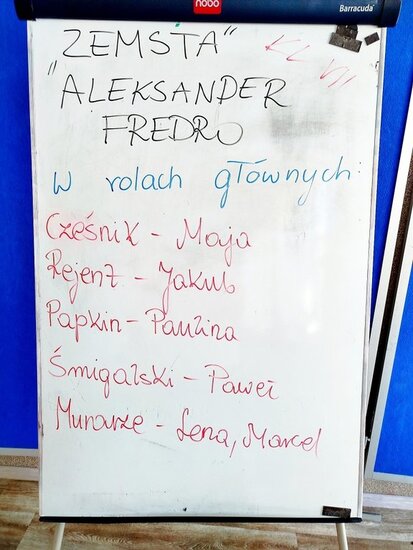 nobo
Barracuda
ZEMSTA" KL VII
"ALEKSANDER
FREDRO
W rolach głównych:
Cześnik - Maja
Rejent - Jakub
Papkin - Paulina
Śmigalski - Paweł
Murarze - Lena, Marcel